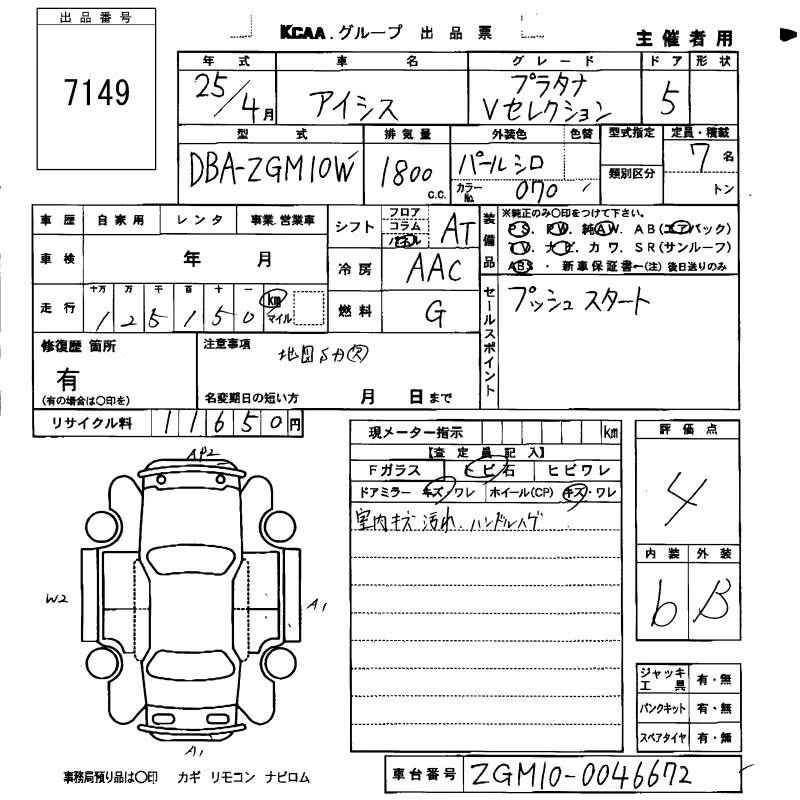 出品番号
7149
KCAA.グループ 出品票
主催者用
年式 車名 グレード ドア 形状
25/4月 アイシス プラタナ Vセレクション 5
型式 排気量 外装色 色替 型式指定 定員・積載
DBA-ZGM10W 1800 C.C. パールシロ 類別区分 7名
カラーNo. 070 トン
車歴 自家用 レンタ 事業.営業車
車検 年 月
走行 十万 万 千 百 十 一 km マイル
1 2 5 1 5 0
シフト フロア コラム パネル AT
冷房 AAC
燃料 G
装備品
※純正のみ○印をつけて下さい。
PS. PW. 純AW. AB(エアバック)
TV. ナビ. カワ. SR(サンルーフ)
ABS ・ 新車保証書←(注) 後日送りのみ
セールスポイント
プッシュスタート
修復歴 箇所
有
(有の場合は○印を)
注意事項
地図ディスク欠
名変期日の短い方 月 日まで
リサイクル料 11650円
現メーター指示 km
【査定員記入】
Fガラス トビ石 ヒビワレ
ドアミラー キズ・ワレ ホイール(CP) キズ・ワレ
室内キズ 汚れ、ハンドルハゲ
評価点
4
内装 外装
b B
AP2
W2
A1
A1
ジャッキ工具 有・無
パンクキット 有・無
スペアタイヤ 有・無
事務局預り品は○印 カギ リモコン ナビロム
車台番号 ZGM10-0046672